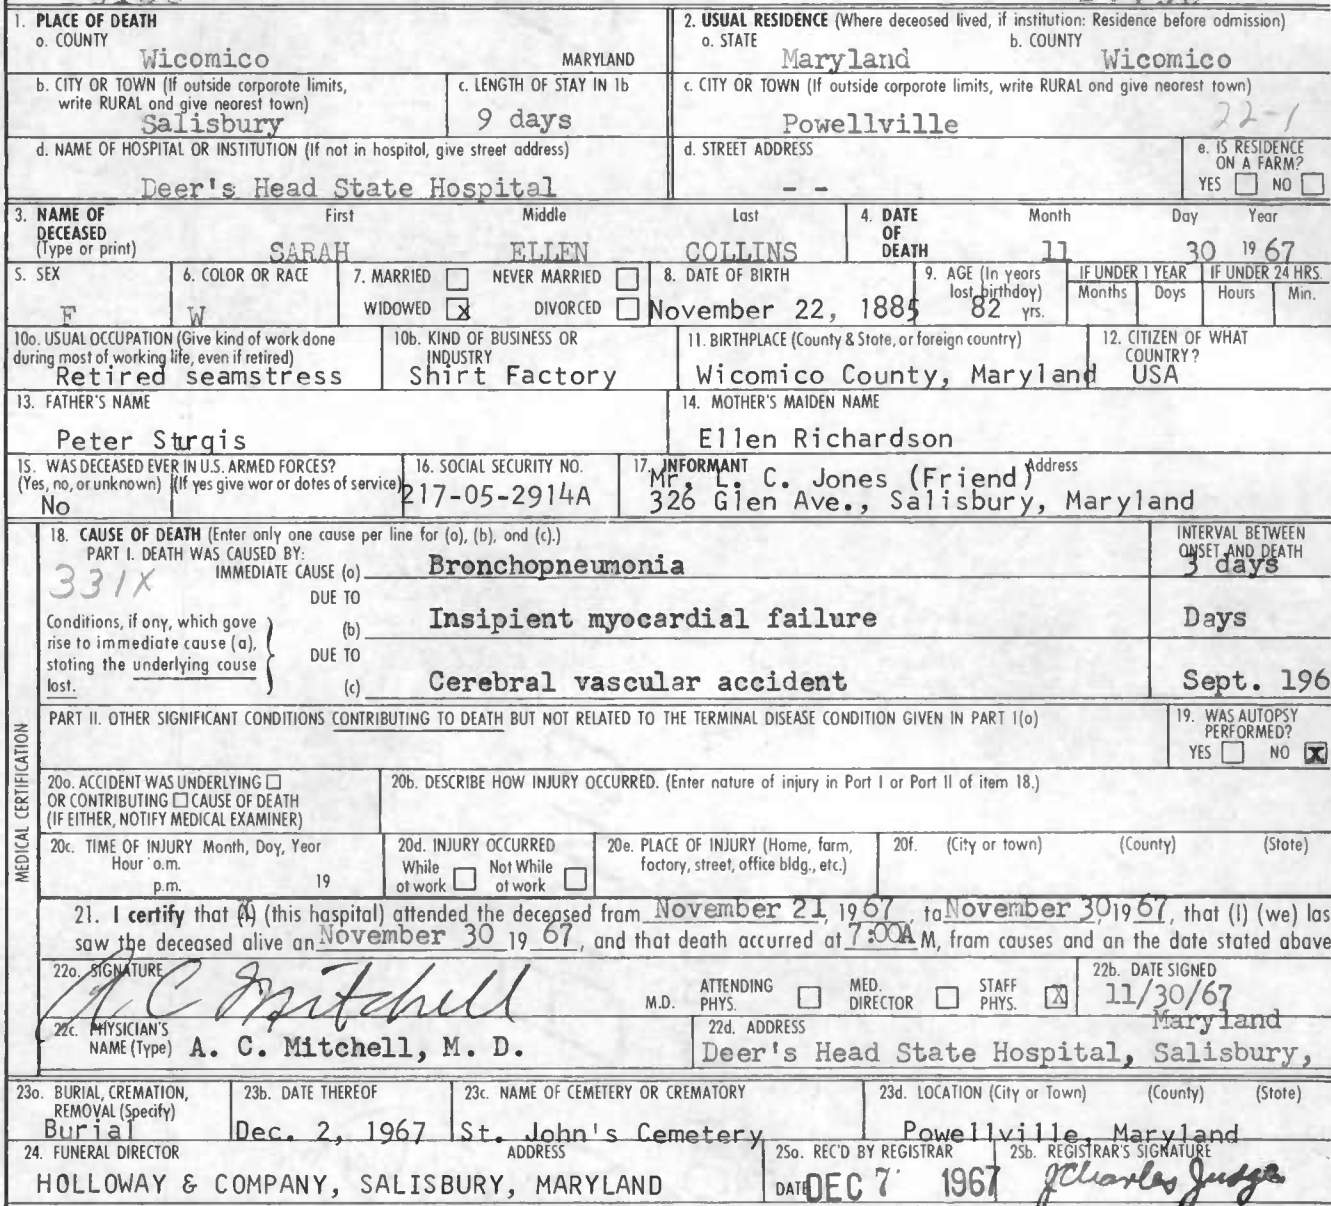 1. PLACE OF DEATH
a. COUNTY
Wicomico MARYLAND
2. USUAL RESIDENCE (Where deceased lived, if institution: Residence before admission)
a. STATE b. COUNTY
Maryland Wicomico
b. CITY OR TOWN (If outside corporate limits,
write RURAL and give nearest town)
Salisbury
c. LENGTH OF STAY IN 1b
9 days
c. CITY OR TOWN (If outside corporate limits, write RURAL and give nearest town)
Powellville 22-1
d. NAME OF HOSPITAL OR INSTITUTION (If not in hospital, give street address)
Deer's Head State Hospital
d. STREET ADDRESS
- -
e. IS RESIDENCE
ON A FARM?
YES NO
3. NAME OF
DECEASED
(Type or print)
First Middle Last
SARAH ELLEN COLLINS
4. DATE
OF
DEATH
Month Day Year
11 30 1967
5. SEX
F
6. COLOR OR RACE
W
7. MARRIED NEVER MARRIED
WIDOWED X DIVORCED
8. DATE OF BIRTH
November 22, 1885
9. AGE (In years
last birthday)
82 yrs.
IF UNDER 1 YEAR
Months Days
IF UNDER 24 HRS.
Hours Min.
10a. USUAL OCCUPATION (Give kind of work done
during most of working life, even if retired)
Retired seamstress
10b. KIND OF BUSINESS OR
INDUSTRY
Shirt Factory
11. BIRTHPLACE (County & State, or foreign country)
Wicomico County, Maryland
12. CITIZEN OF WHAT
COUNTRY?
USA
13. FATHER'S NAME
Peter Sturgis
14. MOTHER'S MAIDEN NAME
Ellen Richardson
15. WAS DECEASED EVER IN U.S. ARMED FORCES?
(Yes, no, or unknown) (If yes give war or dates of service)
No
16. SOCIAL SECURITY NO.
217-05-2914A
17. INFORMANT Address
Mr. L. C. Jones (Friend)
326 Glen Ave., Salisbury, Maryland
18. CAUSE OF DEATH (Enter only one cause per line for (a), (b), and (c).)
PART I. DEATH WAS CAUSED BY:
331X
IMMEDIATE CAUSE (a) Bronchopneumonia
INTERVAL BETWEEN
ONSET AND DEATH
3 days
DUE TO
Conditions, if any, which gave
rise to immediate cause (a),
stating the underlying cause
last.
(b) Insipient myocardial failure Days
DUE TO
(c) Cerebral vascular accident Sept. 196
PART II. OTHER SIGNIFICANT CONDITIONS CONTRIBUTING TO DEATH BUT NOT RELATED TO THE TERMINAL DISEASE CONDITION GIVEN IN PART I(a)
19. WAS AUTOPSY
PERFORMED?
YES NO X
MEDICAL CERTIFICATION
20a. ACCIDENT WAS UNDERLYING
OR CONTRIBUTING CAUSE OF DEATH
(IF EITHER, NOTIFY MEDICAL EXAMINER)
20b. DESCRIBE HOW INJURY OCCURRED. (Enter nature of injury in Part I or Part II of item 18.)
20c. TIME OF INJURY Month, Day, Year
Hour a.m.
p.m. 19
20d. INJURY OCCURRED
While Not While
at work at work
20e. PLACE OF INJURY (Home, farm,
factory, street, office bldg., etc.)
20f. (City or town) (County) (State)
21. I certify that (I) (this hospital) attended the deceased from November 21, 1967, to November 30, 1967, that (I) (we) las
saw the deceased alive on November 30 1967, and that death occurred at 7:00A M, from causes and on the date stated above
22a. SIGNATURE
A C Mitchell
M.D. ATTENDING PHYS. MED. DIRECTOR STAFF PHYS. X
22b. DATE SIGNED
11/30/67
22c. PHYSICIAN'S
NAME (Type) A. C. Mitchell, M. D.
22d. ADDRESS
Maryland
Deer's Head State Hospital, Salisbury,
23a. BURIAL, CREMATION,
REMOVAL (Specify)
Burial
23b. DATE THEREOF
Dec. 2, 1967
23c. NAME OF CEMETERY OR CREMATORY
St. John's Cemetery
23d. LOCATION (City or Town) (County) (State)
Powellville, Maryland
24. FUNERAL DIRECTOR ADDRESS
HOLLOWAY & COMPANY, SALISBURY, MARYLAND
25a. REC'D BY REGISTRAR
DATE DEC 7 1967
25b. REGISTRAR'S SIGNATURE
J Charles Judge